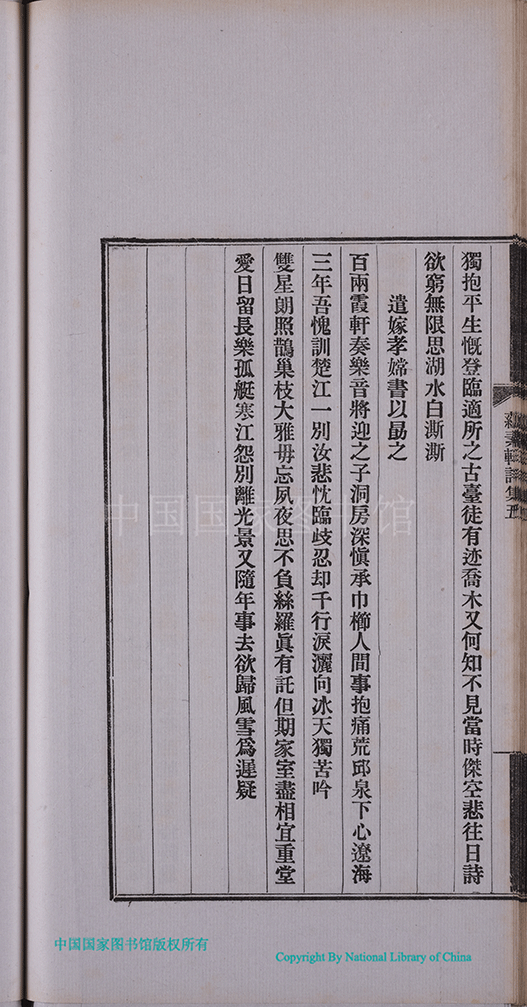 獨抱平生慨登臨適所之古臺徒有迹喬木又何知不見當時傑空悲往日詩
欲窮無限思湖水白澌澌
遣嫁孝嫦書以勗之
百兩霞軒奏樂音將迎之子洞房深愼承巾櫛人間事抱痛荒邱泉下心遼海
三年吾愧訓楚江一別汝悲忱臨歧忍却千行淚灑向冰天獨苦吟
雙星朗照鵲巢枝大雅毋忘夙夜思不負絲羅眞有託但期家室盡相宜重堂
愛日留長樂孤艇寒江怨別離光景又隨年事去欲歸風雪爲遲疑
詩集五
中国国家图书馆
中国国家图书馆版权所有
Copyright By National Library of China